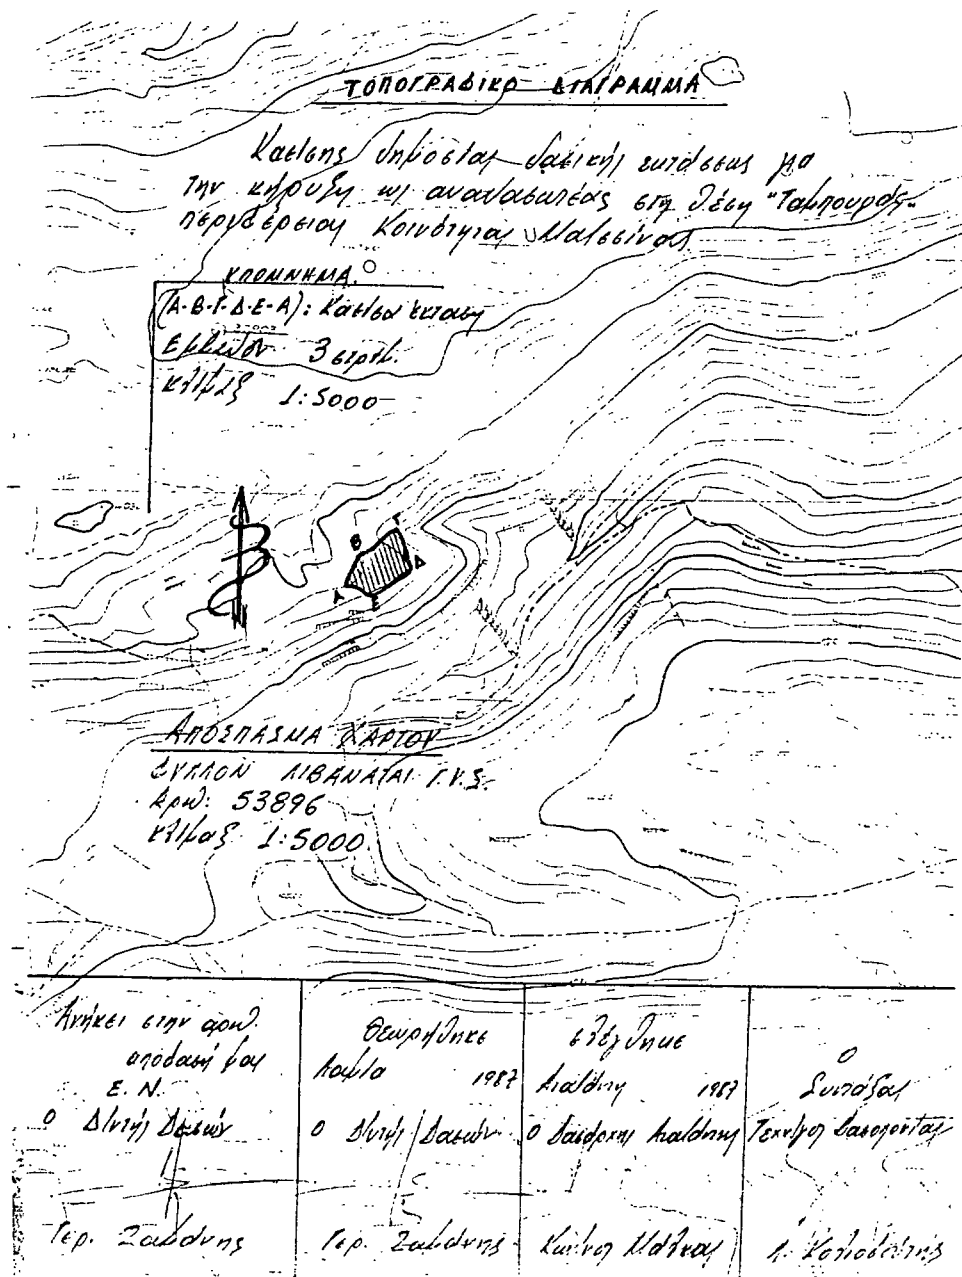 ΤΟΠΟΓΡΑΦΙΚΟ ΔΙΑΓΡΑΜΜΑ
Καείσης δημόσιας δασικής εκτάσεως για
την κήρυξη ως αναδασωτέας στη θέση "Ταμπουράς"
περιφέρειας Κοινότητας Μαλεσίνας
ΥΠΟΜΝΗΜΑ
(Α-Β-Γ-Δ-Ε-Α): Καείσα έκταση
Εμβαδόν 3 στρέμ.
Κλίμαξ 1:5000
Β Γ
Α Ε Δ
ΑΠΟΣΠΑΣΜΑ ΧΑΡΤΟΥ
ΦΥΛΛΟΝ ΛΙΒΑΝΑΤΑΙ Γ.Υ.Σ.
Αριθ: 53896
Κλίμαξ 1:5000
Ανήκει στην αριθ.
απόφασή μας
Ε. Ν.
Ο Δ/ντής Δασών
Γερ.
Θεωρήθηκε
Λαμία 1987
Ο Δ/ντής Δασών
Γερ.
Ελέγχθηκε
Αταλάντη 1987
Ο Δασάρχης Αταλάντης
Ο
Συντάξας
Τεχν/γος Δασοπονίας